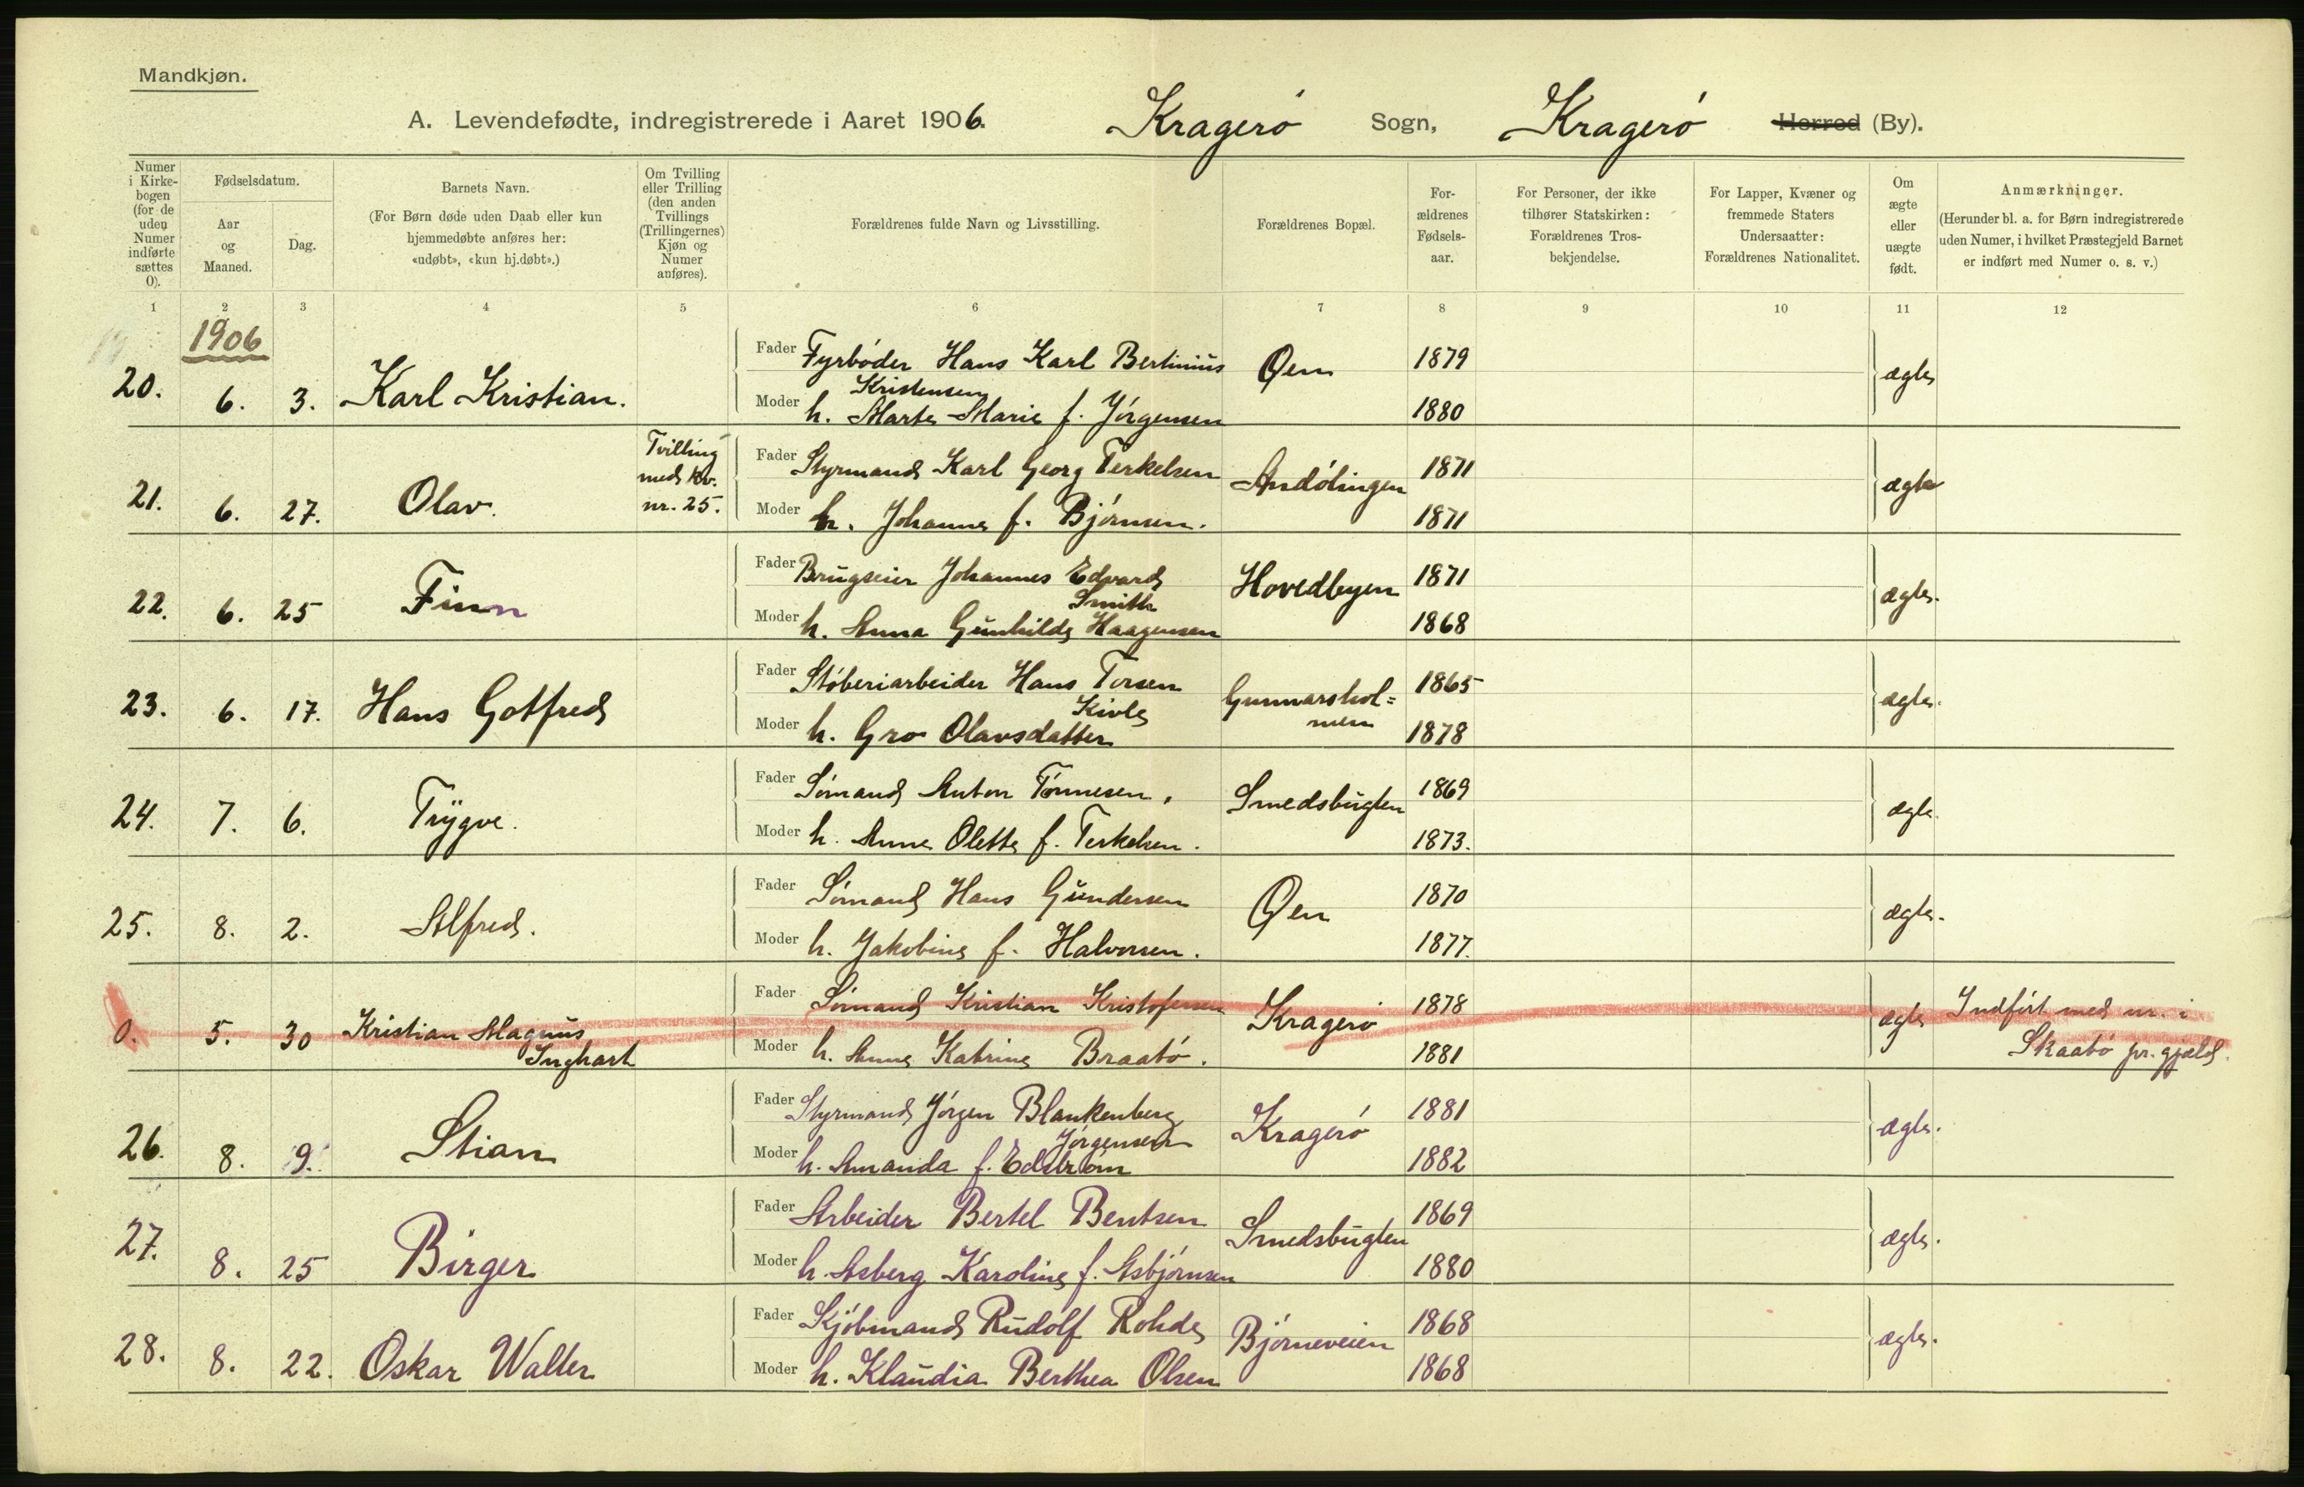 Mandkjøn.
A. Levendefødte, indregistrerede i Aaret 1906. Kragerø Sogn, Kragerø Herred (By).
Numer i Kirkebogen (for de uden Numer indførte sættes 0).
Fødselsdatum.
Aar og Maaned.
Dag.
Barnets Navn.
(For Børn døde uden Daab eller kun
hjemmedøbte anføres her:
«udøbt», «kun hj.døbt».)
Om Tvilling
eller Trilling
(den anden
Tvillings
(Trillingernes)
Kjøn og
Numer
anføres).
Forældrenes fulde Navn og Livsstilling.
Forældrenes Bopæl.
For-
ældrenes
Fødsels-
aar.
For Personer, der ikke
tilhører Statskirken:
Forældrenes Tros-
bekjendelse.
For Lapper, Kvæner og
fremmede Staters
Undersaatter:
Forældrenes Nationalitet.
Om
ægte
eller
uægte
født.
Anmærkninger.
(Herunder bl. a. for Børn indregistrerede
uden Numer, i hvilket Præstegjeld Barnet
er indført med Numer o. s. v.)
1 2 3 4 5 6 7 8 9 10 11 12
1906
20. 6. 3. Karl Kristian. Fader Fyrbøder Hans Karl Bertinius Kristensen Øen 1879 ægte
Moder h. Marte Marie f. Jørgensen 1880
21. 6. 27. Olav. Tvilling med kv. nr. 25. Fader Styrmand Karl Georg Terkelsen Andølingen 1871 ægte
Moder h. Johanne f. Bjørnsen. 1871
22. 6. 25 Finn Fader Brugseier Johannes Edvard Smith Hovedbyen 1871 ægte.
Moder h. Anna Gunhilde Haagensen 1868
23. 6. 17. Hans Gotfred Fader Støberiarbeider Hans Torsen Kivle Gunnarshol=
men 1865 ægte.
Moder h. Gro Olavsdatter 1878
24. 7. 6. Trygve. Fader Sømand Anton Tønnesen. Smedsbugten 1869 ægte.
Moder h. Anne Olette f. Terkelsen. 1873.
25. 8. 2. Alfred. Fader Sømand Hans Gundersen Øen 1870 ægte.
Moder h. Jakobine f. Halvorsen. 1877.
0. 5. 30 Kristian Magnus
Inghart Fader Sømand Kristian Kristofersen Kragerø 1878 ægte Indført med nr. i
Moder h. Anne Katrine Braatø. 1881 Skaatø pr.gjæld.
26. 8. 9. Stian Fader Styrmand Jørgen Blankenberg Jørgensen Kragerø 1881 ægte.
Moder h. Amanda f. Edstrøm 1882
27. 8. 25 Birger Fader Arbeider Bertel Bentsen Smedsbugten 1869 ægte.
Moder h. Asberg Karoline f. Asbjørnsen 1880
28. 8. 22. Oskar Walter Fader Kjøbmand Rudolf Rohde Bjørneveien 1868 ægte.
Moder h. Klaudia Berthea Olsen 1868